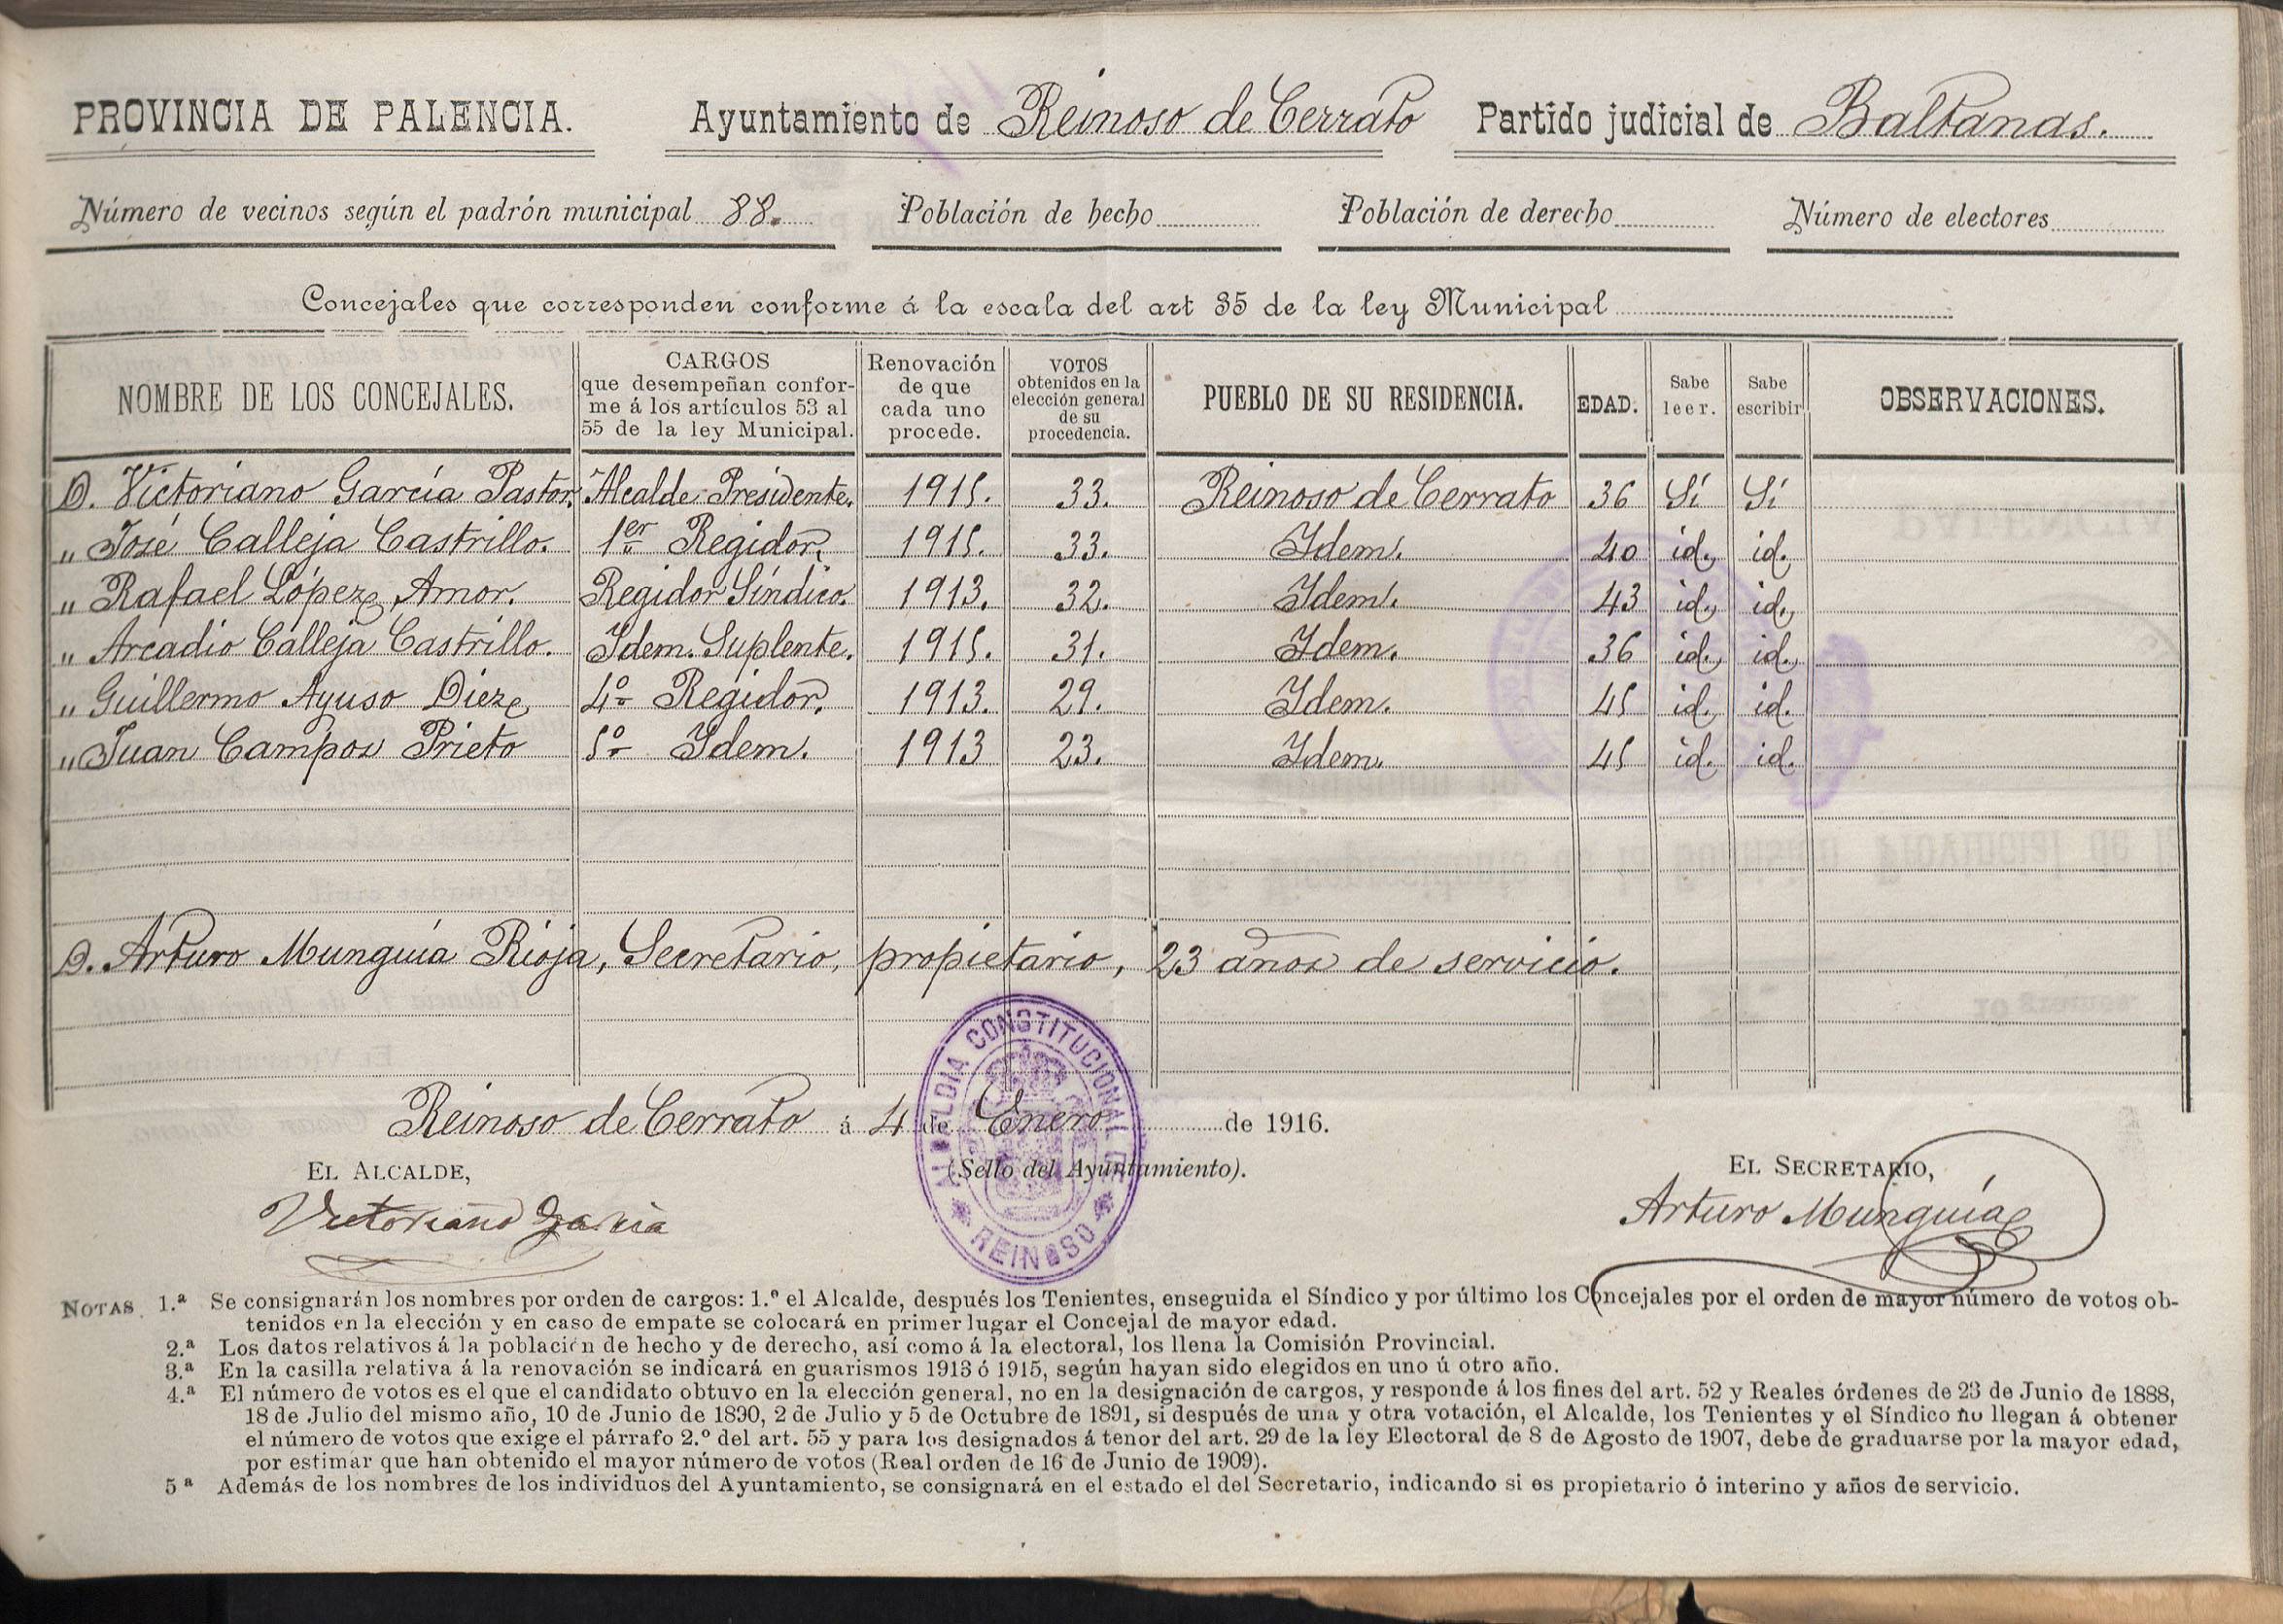 PROVINCIA DE PALENCIA. Ayuntamiento de Reinoso de Cerrato Partido judicial de Baltanas.
Número de vecinos según el padrón municipal 88. Población de hecho Población de derecho Número de electores
Concejales que corresponden conforme á la escala del art 35 de la ley Municipal
NOMBRE DE LOS CONCEJALES. CARGOS que desempeñan confor- me á los artículos 53 al 55 de la ley Municipal. Renovación de que cada uno procede. VOTOS obtenidos en la elección general de su procedencia. PUEBLO DE SU RESIDENCIA. EDAD. Sabe leer. Sabe escribir OBSERVACIONES.
D. Victoriano García Pastor. Alcalde Presidente. 1915. 33. Reinoso de Cerrato 36 Sí Sí
" José Calleja Castrillo. 1er Regidor. 1915. 33. Idem. 40 id. id.
" Rafael López Amor. Regidor Síndico. 1913. 32. Idem. 43 id. id.
" Arcadio Calleja Castrillo. Idem. Suplente. 1915. 31. Idem. 36 id. id.
" Guillermo Ayuso Diez 4º Regidor. 1913. 29. Idem. 45 id. id.
" Juan Campos Prieto 5º Idem. 1913 23. Idem. 45 id. id.
D. Arturo Munguía Rioja, Secretario, propietario, 23 años de servicio.
Reinoso de Cerrato á 4 de Enero de 1916.
ALCALDIA CONSTITUCIONAL DE REINOSO
EL ALCALDE, (Sello del Ayuntamiento). EL SECRETARIO,
Victoriano Garcia Arturo Munguía
NOTAS 1.ª Se consignarán los nombres por orden de cargos: 1.º el Alcalde, después los Tenientes, enseguida el Síndico y por último los Concejales por el orden de mayor número de votos ob-
tenidos en la elección y en caso de empate se colocará en primer lugar el Concejal de mayor edad.
2.ª Los datos relativos á la población de hecho y de derecho, así como á la electoral, los llena la Comisión Provincial.
3.ª En la casilla relativa á la renovación se indicará en guarismos 1913 ó 1915, según hayan sido elegidos en uno ú otro año.
4.ª El número de votos es el que el candidato obtuvo en la elección general, no en la designación de cargos, y responde á los fines del art. 52 y Reales órdenes de 23 de Junio de 1888,
18 de Julio del mismo año, 10 de Junio de 1890, 2 de Julio y 5 de Octubre de 1891, si después de una y otra votación, el Alcalde, los Tenientes y el Síndico no llegan á obtener
el número de votos que exige el párrafo 2.º del art. 55 y para los designados á tenor del art. 29 de la ley Electoral de 8 de Agosto de 1907, debe de graduarse por la mayor edad,
por estimar que han obtenido el mayor número de votos (Real orden de 16 de Junio de 1909).
5ª Además de los nombres de los individuos del Ayuntamiento, se consignará en el estado el del Secretario, indicando si es propietario ó interino y años de servicio.